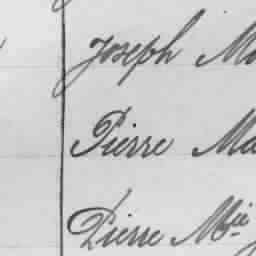 Joseph M
Pierre Ma
Pierre Mie